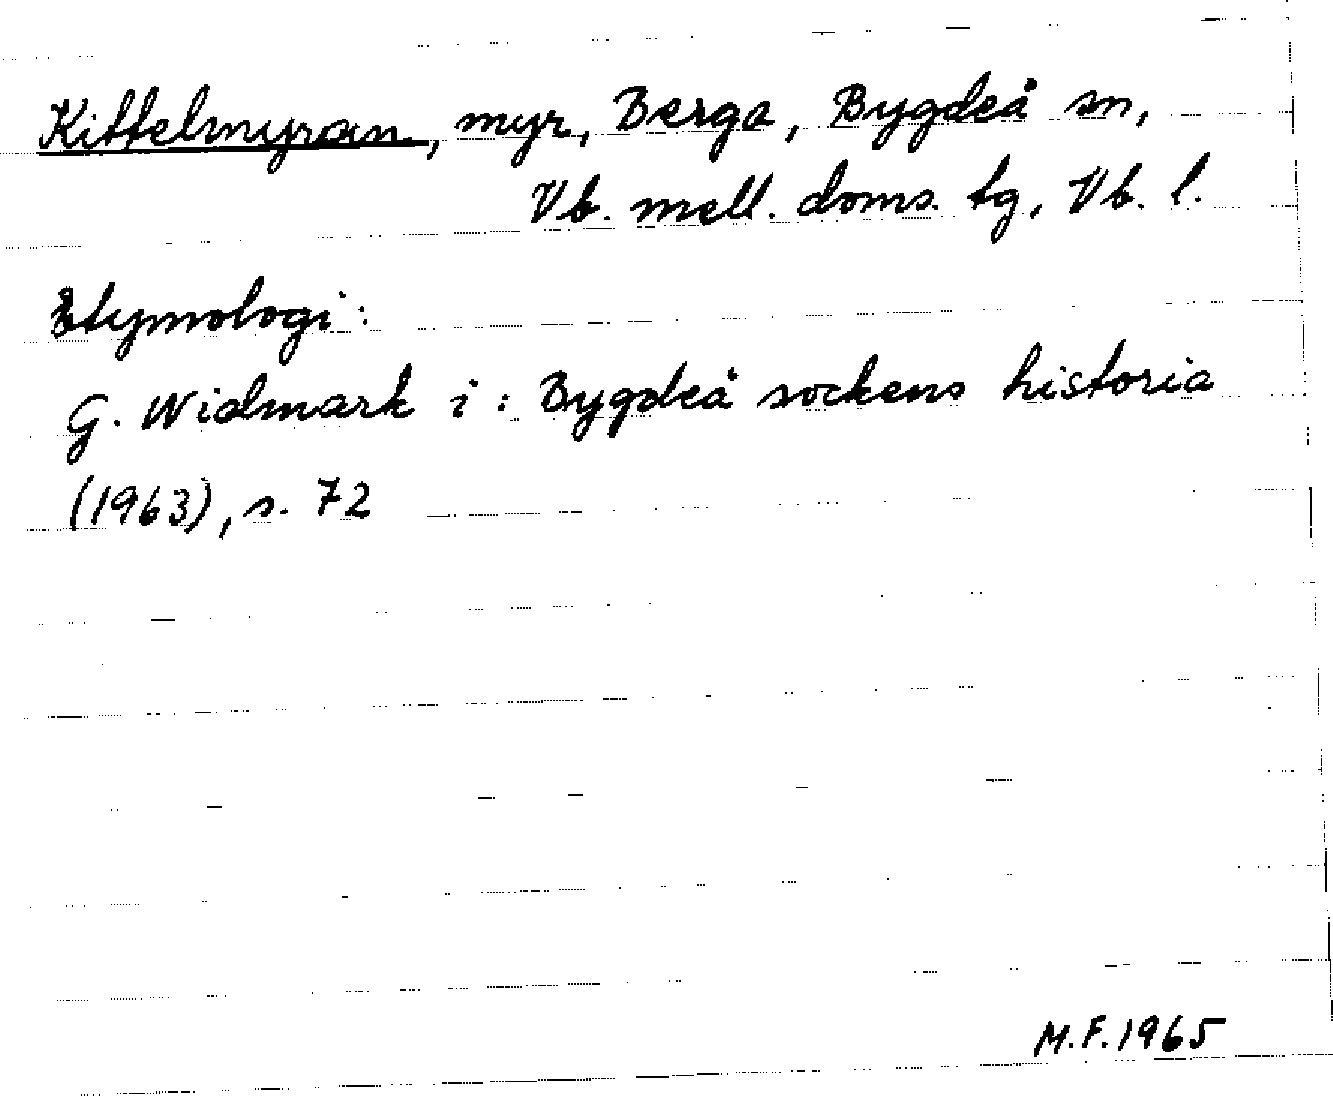 Kittelmyran, myr, Berga, Bygdeå sn,
Vb. mell. doms. tg, Vb. l.
Etymologi:
G. Widmark i: Bygdeå sockens historia
(1963), s. 72
M.F. 1965